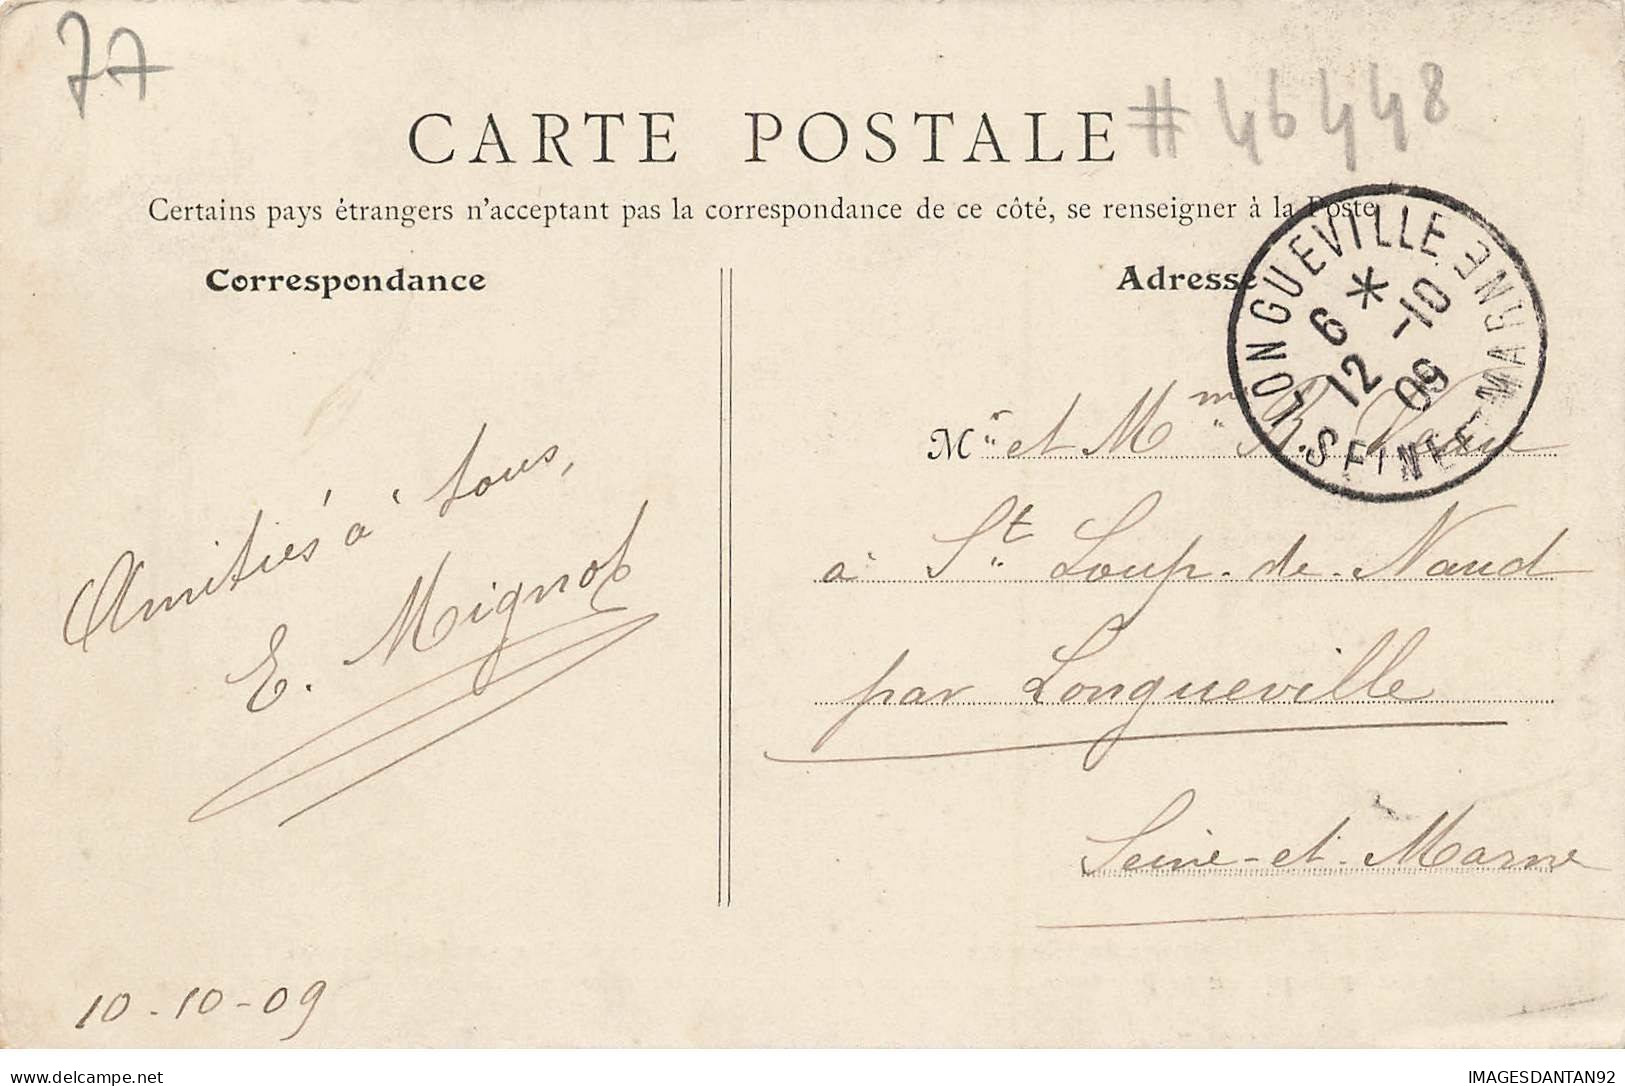 77
# 46448
CARTE POSTALE
Certains pays étrangers n'acceptant pas la correspondance de ce côté, se renseigner à la Poste
Correspondance
Adresse
LONGUEVILLE
6 *
12 -10
09
SEINE-ET-MARNE
Amitiés à tous,
E. Mignot
10-10-09
Mr et Mme R.
à St Loup-de-Naud
par Longueville
Seine-et-Marne
delcampe.net
IMAGESDANTAN92